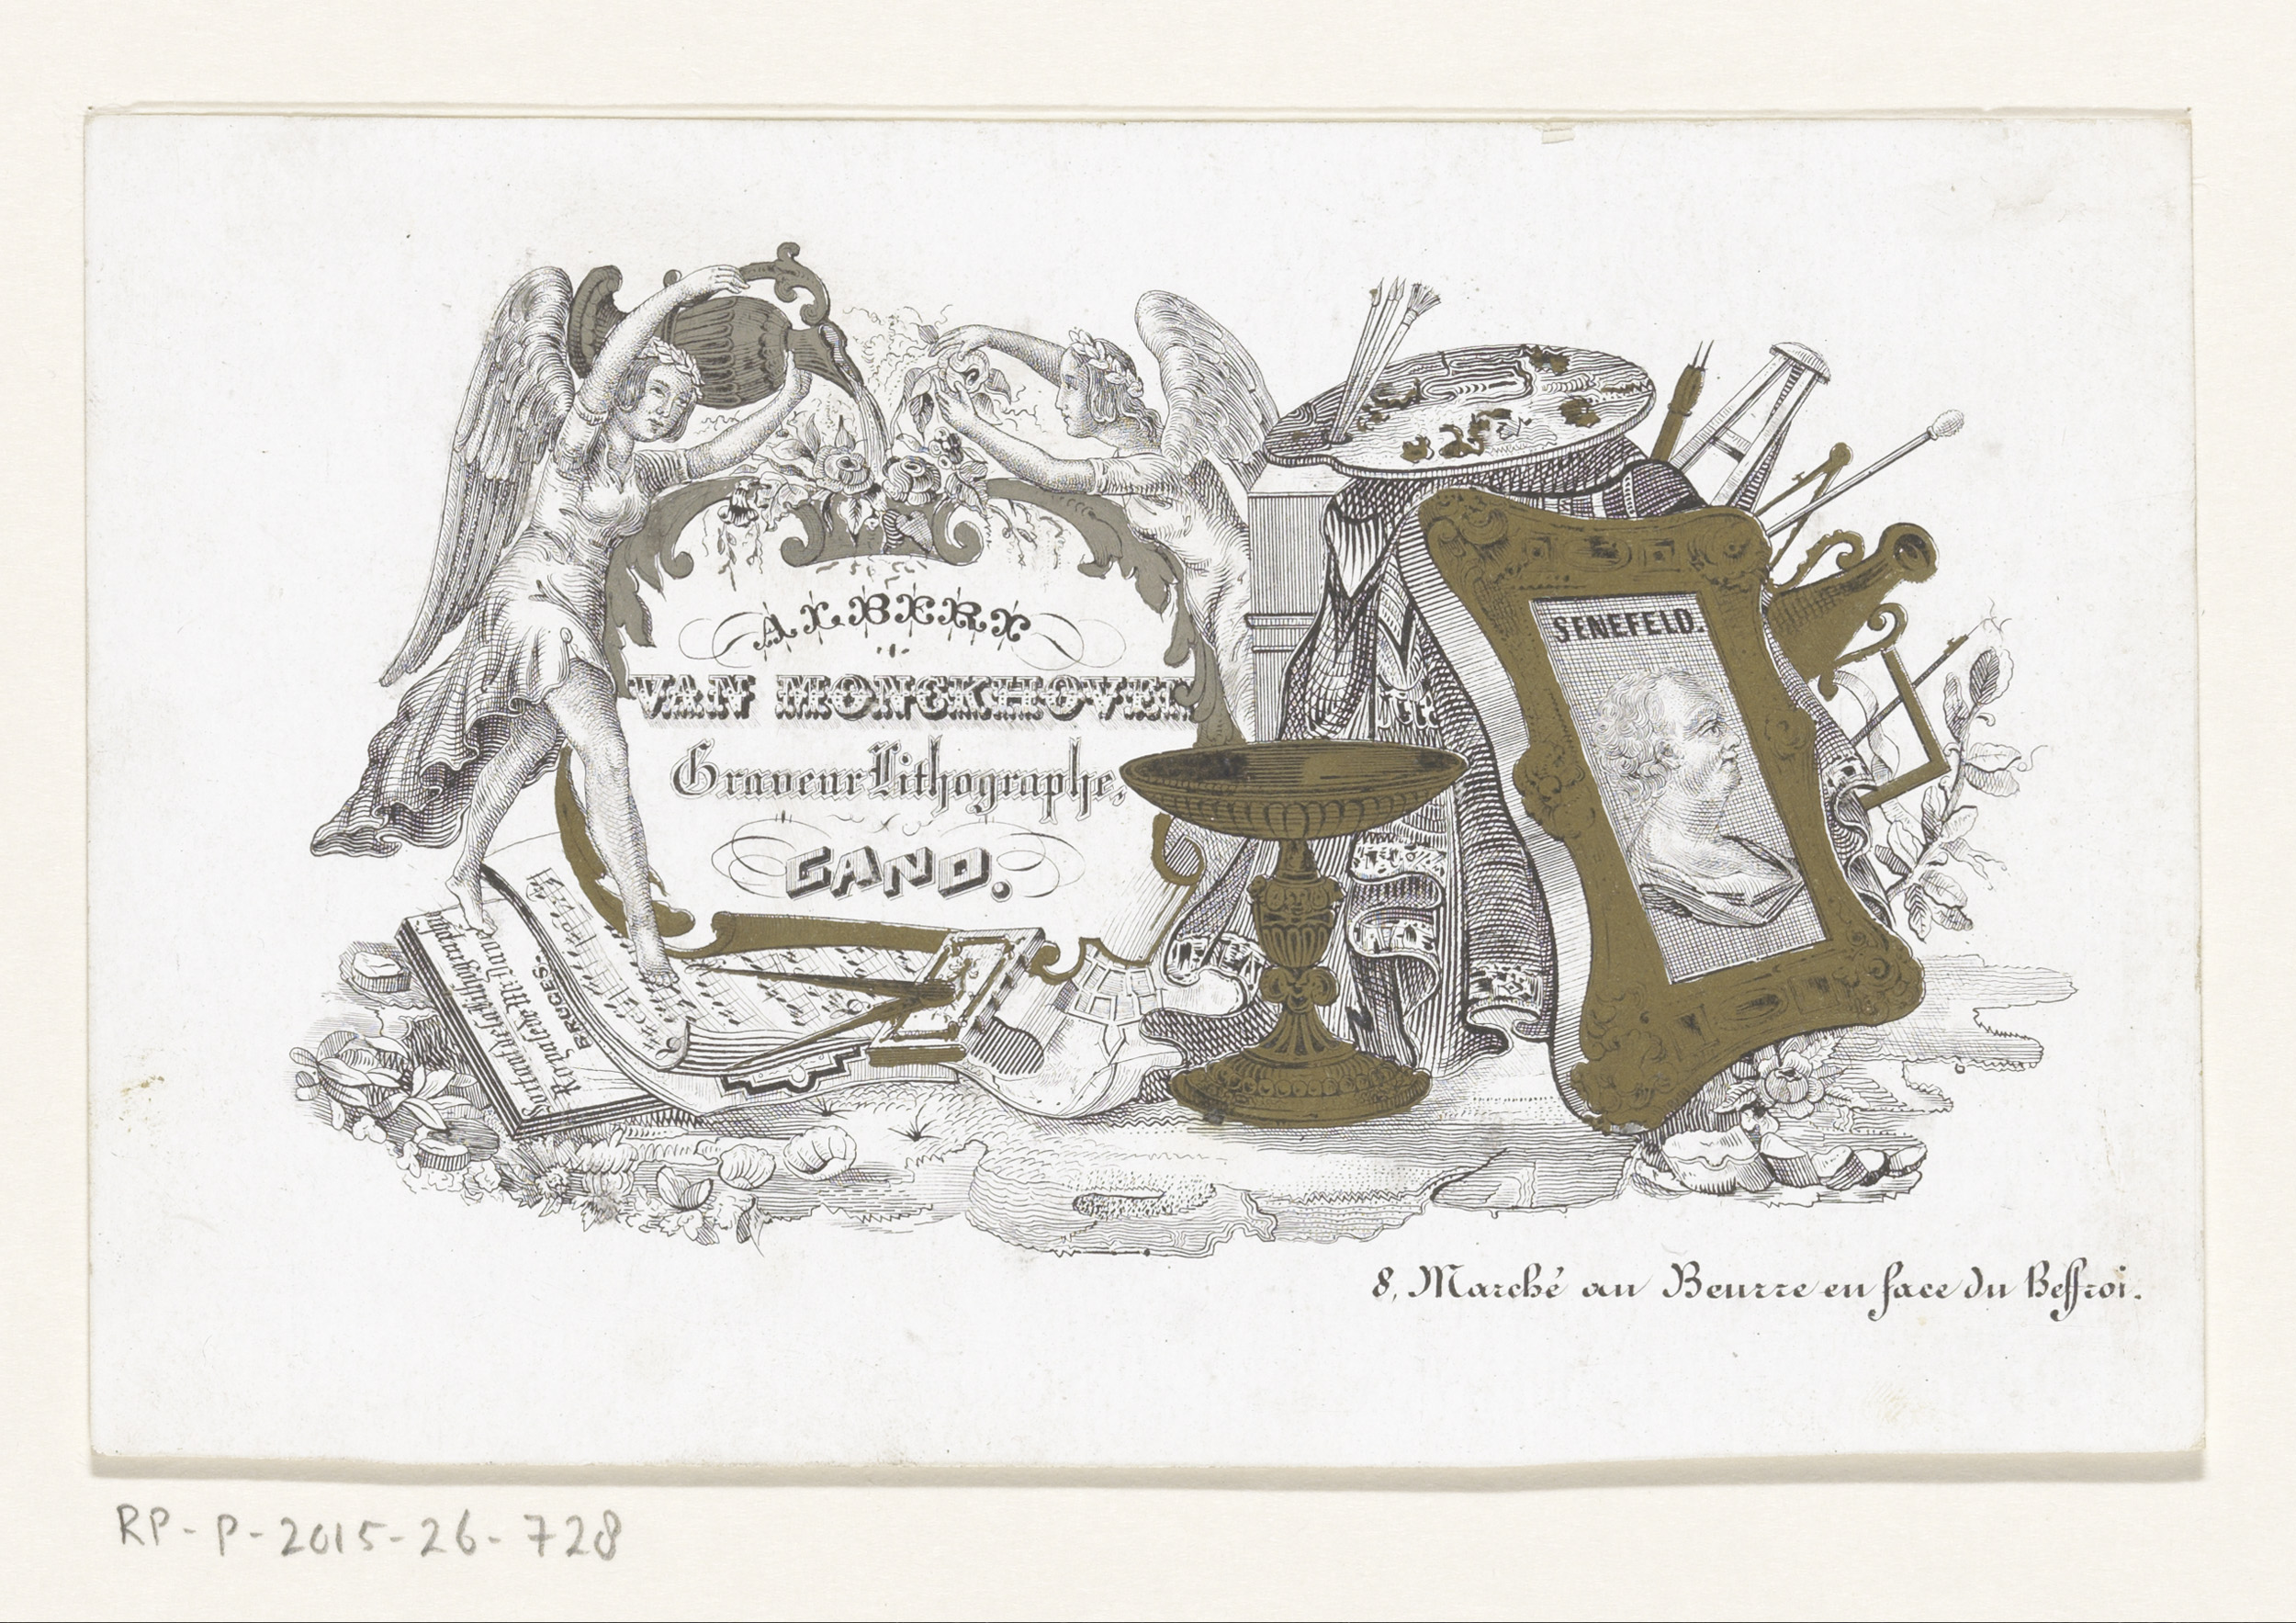 ALBERT
VAN MONCKHOVEN
Graveur Lithographe,
GAND.
SENEFELD.
Royale
BRUGES.
8, Marché au Beurre en face du Beffroi.
RP-P-2015-26-728